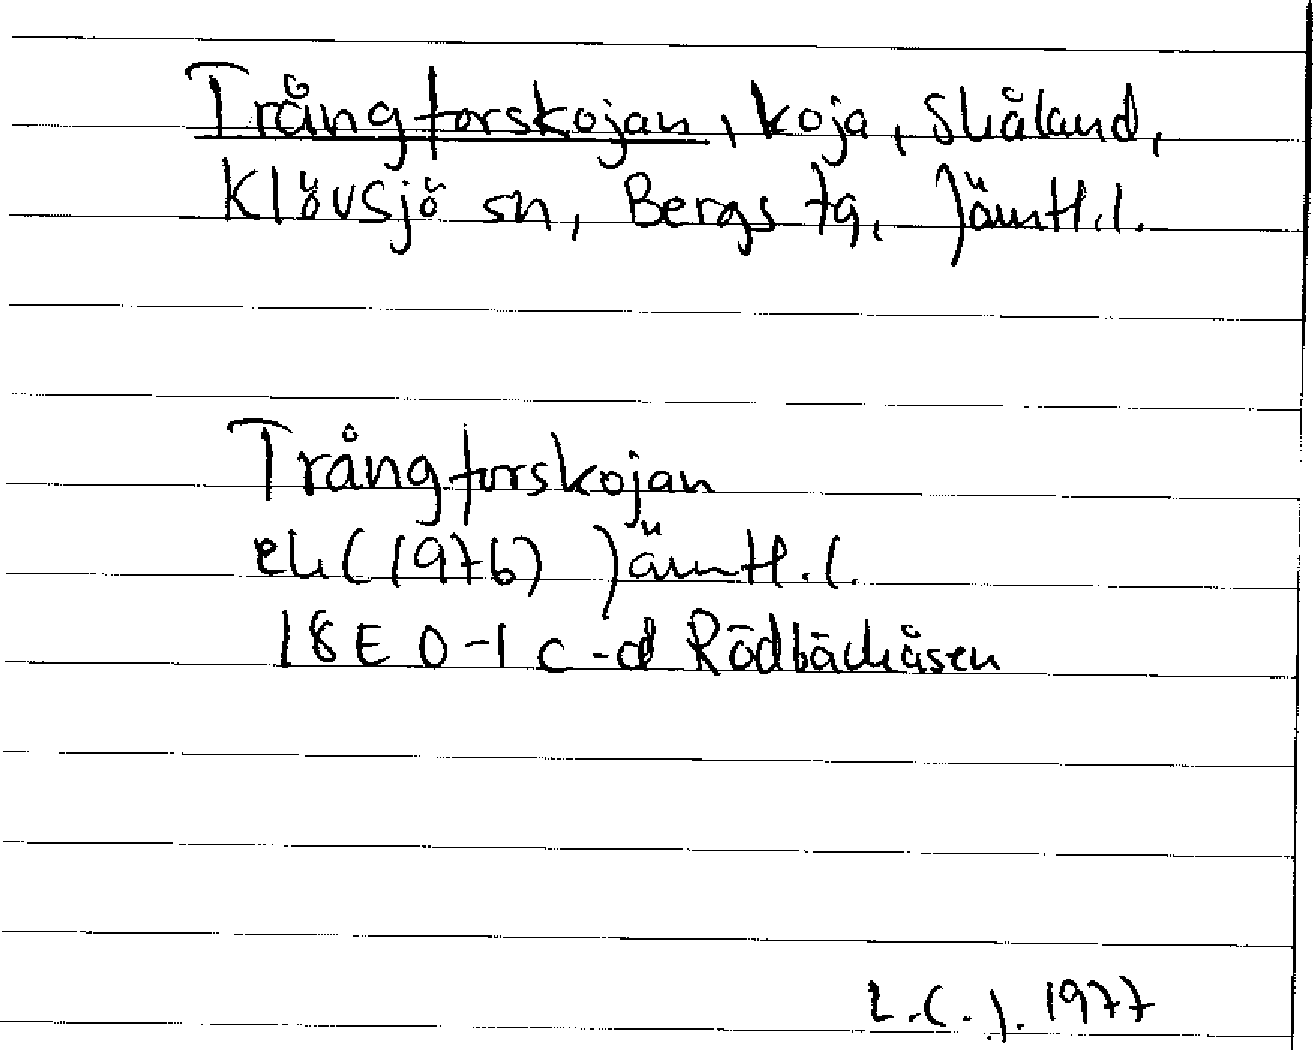 Trångforskojan, koja, Skåland,
Klövsjö sn, Bergs tg, Jämtl.l.
Trångforskojan
ek (1976) Jämtl.l.
18E 0-1 c-d Rödbäckåsen
L.C.J. 1977